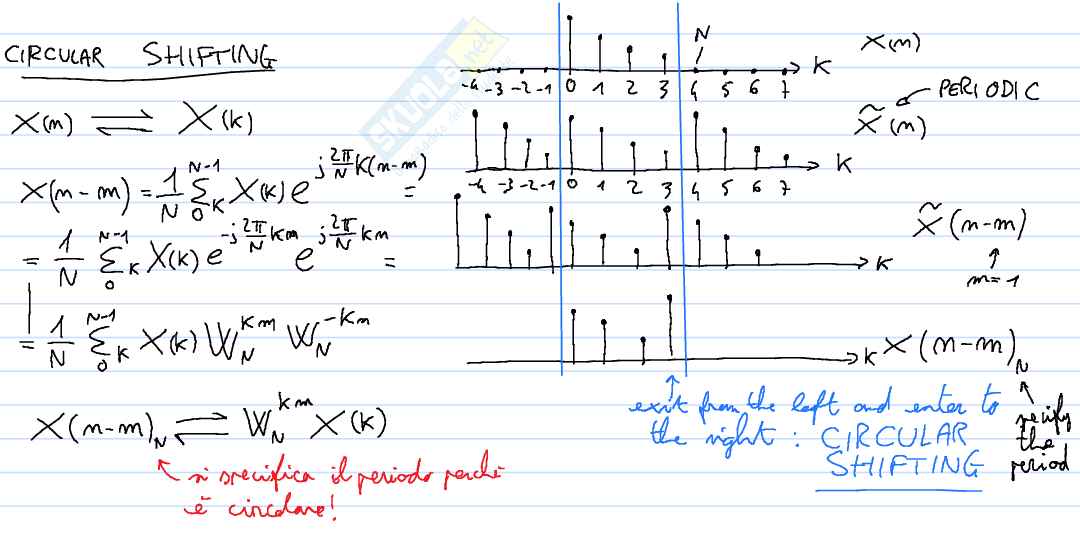 CIRCULAR SHIFTING
x(n) ⇌ X(k)
x(n-m) = 1/N Σ_{0}^{N-1}_k X(k) e^{j 2π/N k(n-m)} =
= 1/N Σ_{0}^{N-1}_k X(k) e^{-j 2π/N km} e^{j 2π/N kn} =
= 1/N Σ_{0}^{N-1}_k X(k) W_N^{km} W_N^{-kn}
x(n-m)_N ⇌ W_N^{km} X(k)
si specifica il periodo perché
è circolare!
N
x(n)
K
-4 -3 -2 -1 0 1 2 3 4 5 6 7
PERIODIC
x̃(n)
K
-4 -3 -2 -1 0 1 2 3 4 5 6 7
x̃(n-m)
K
m=1
K
x(n-m)_N
exit from the left and enter to
the right : CIRCULAR
SHIFTING
specify
the
period
SKUOLA.net